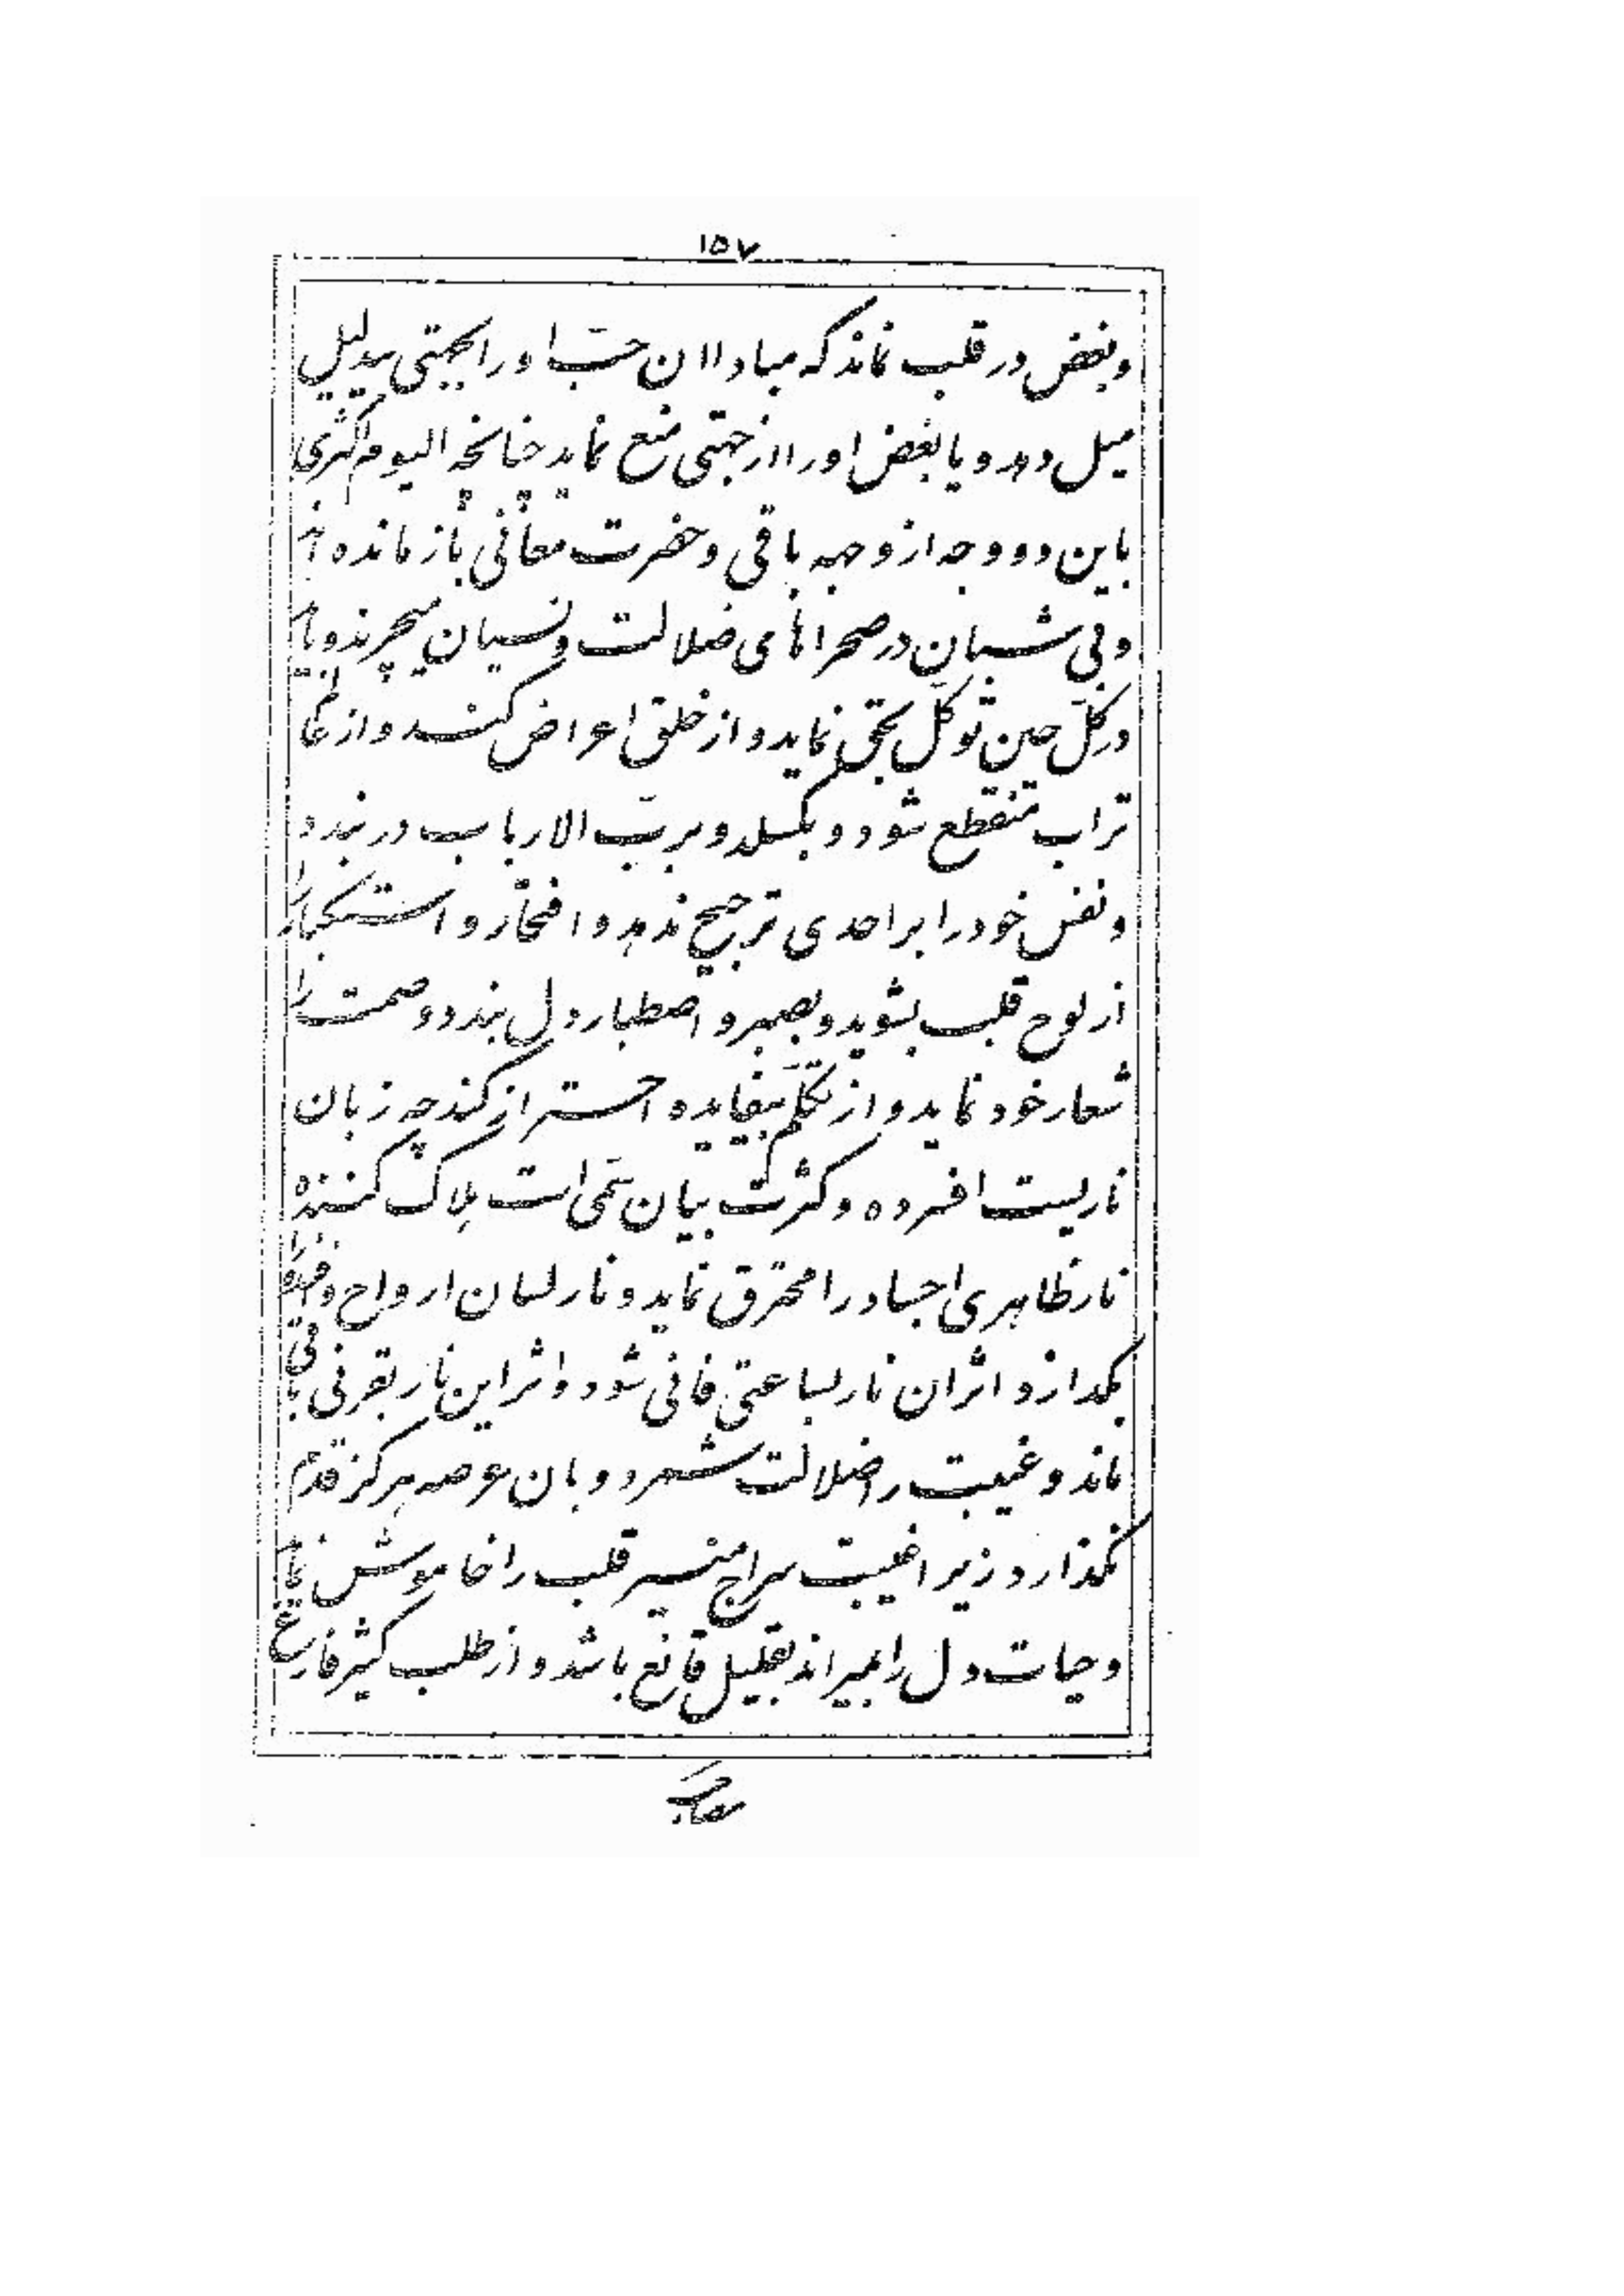 ۱۵۷
و بغض در قلب نماند که مبادا ان حبّ او را بجهتی بیدلیل
میل دهد و یا بغض او را از جهتی منع نماید چنانچه الیوم اکثری
باین دو وجه از وجهه باقی و حضرت معانی باز مانده اند
و بی شبان در صحراهای ضلالت و نسیان میچرند و باید
در کلّ حین توکّل بحق نماید و از خلق اعراض کند و از عالم
تراب منقطع شود و بگسلد و بربّ الارباب در بندد و
و نفس خود را بر احدی ترجیح ندهد و افتخار و استکبار را
از لوح قلب بشوید و بصبر و اصطبار دل بندد و صمت را
شعار خود نماید و از تکلّم بیفایده احتراز کند چه زبان
ناریست افسرده و کثرت بیان سمّی است هلاک کننده
نار ظاهری اجساد را محترق نماید و نار لسان ارواح و افئده را
بگدازد اثر ان نار بساعتی فانی شود و اثر این نار بقرنی باقی
ماند و غیبت را ضلالت شمرد و بان عرصه هرگز قدم
نگذارد زیرا غیبت سراج منیر قلب را خاموش نماید
و حیات دل را بمیراند بقلیل قانع باشد و از طلب کثیر فارغ